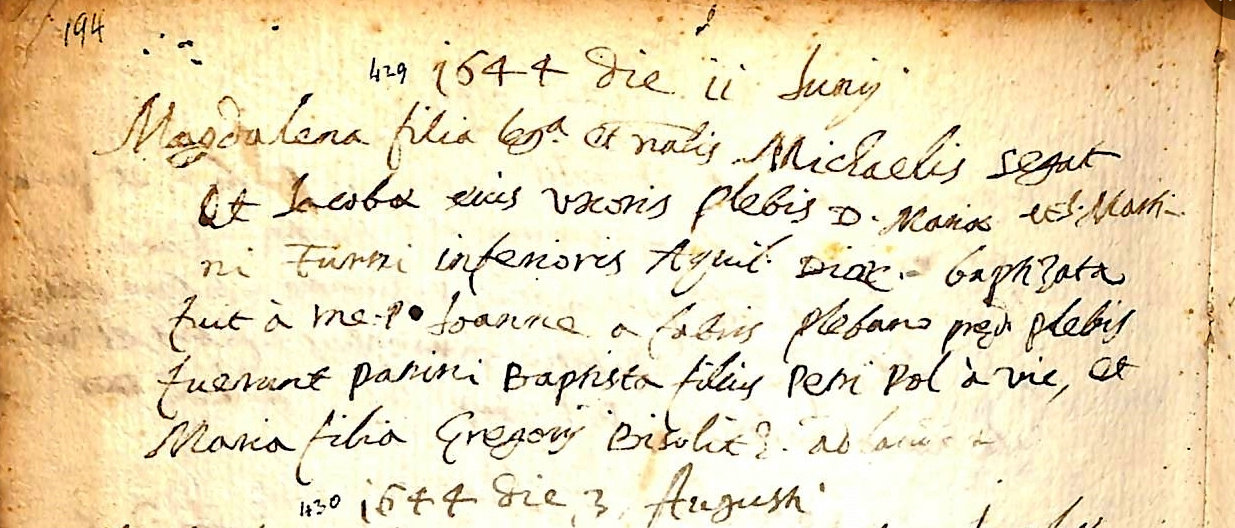 194
429 1644 die ii Junij
Magdalena filia leg.a et nalis Michaelis segat
et Jacobæ eius uxoris plebis D. Mariæ et S. Marti-
ni Turri inferioris Aquil. Diœc. baptizata
fuit à me P. Joanne a fabris plebano pręd. plebis
fuerunt patrini Baptista filius Petri Pol à vie, et
Maria filia Gregorij Bisolit
430 1644 die 3 Augusti